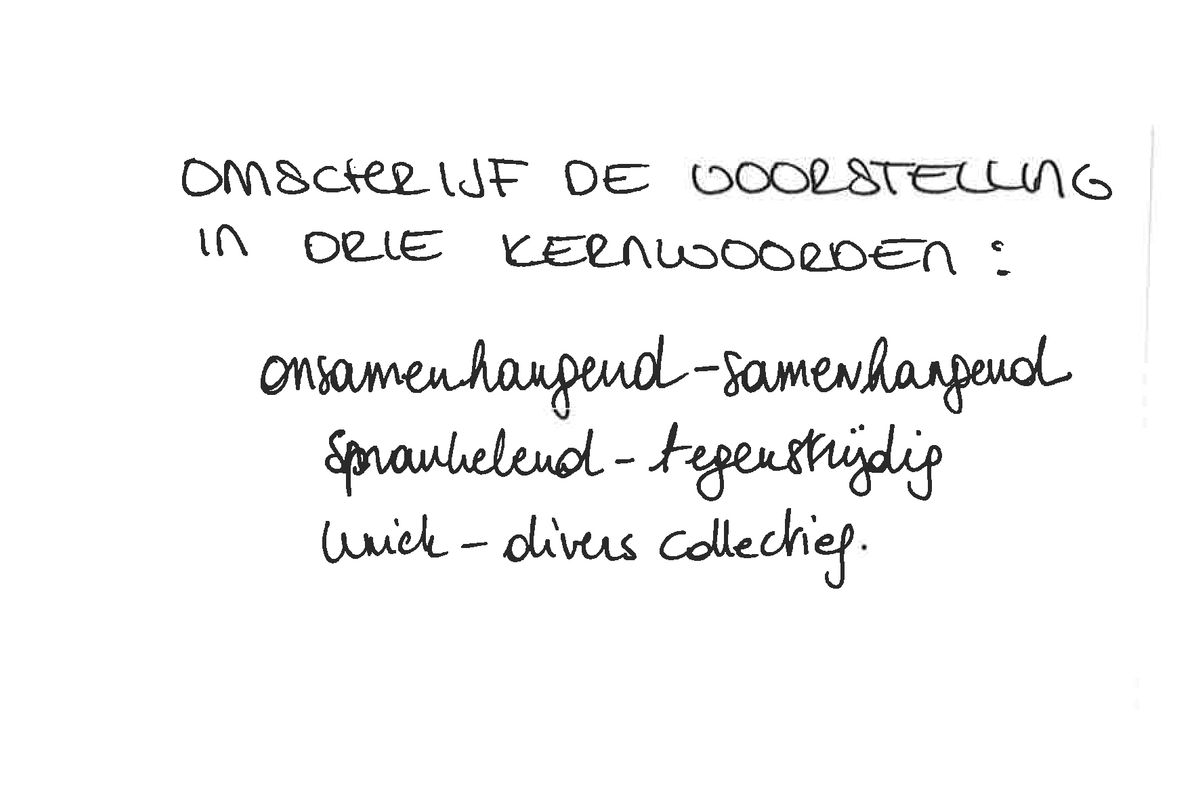 OMSCHRIJF DE VOORSTELLING
IN DRIE KERNWOORDEN :
onsamenhangend - samenhangend
sprankelend - tegenstrijdig
uniek - divers collectief.